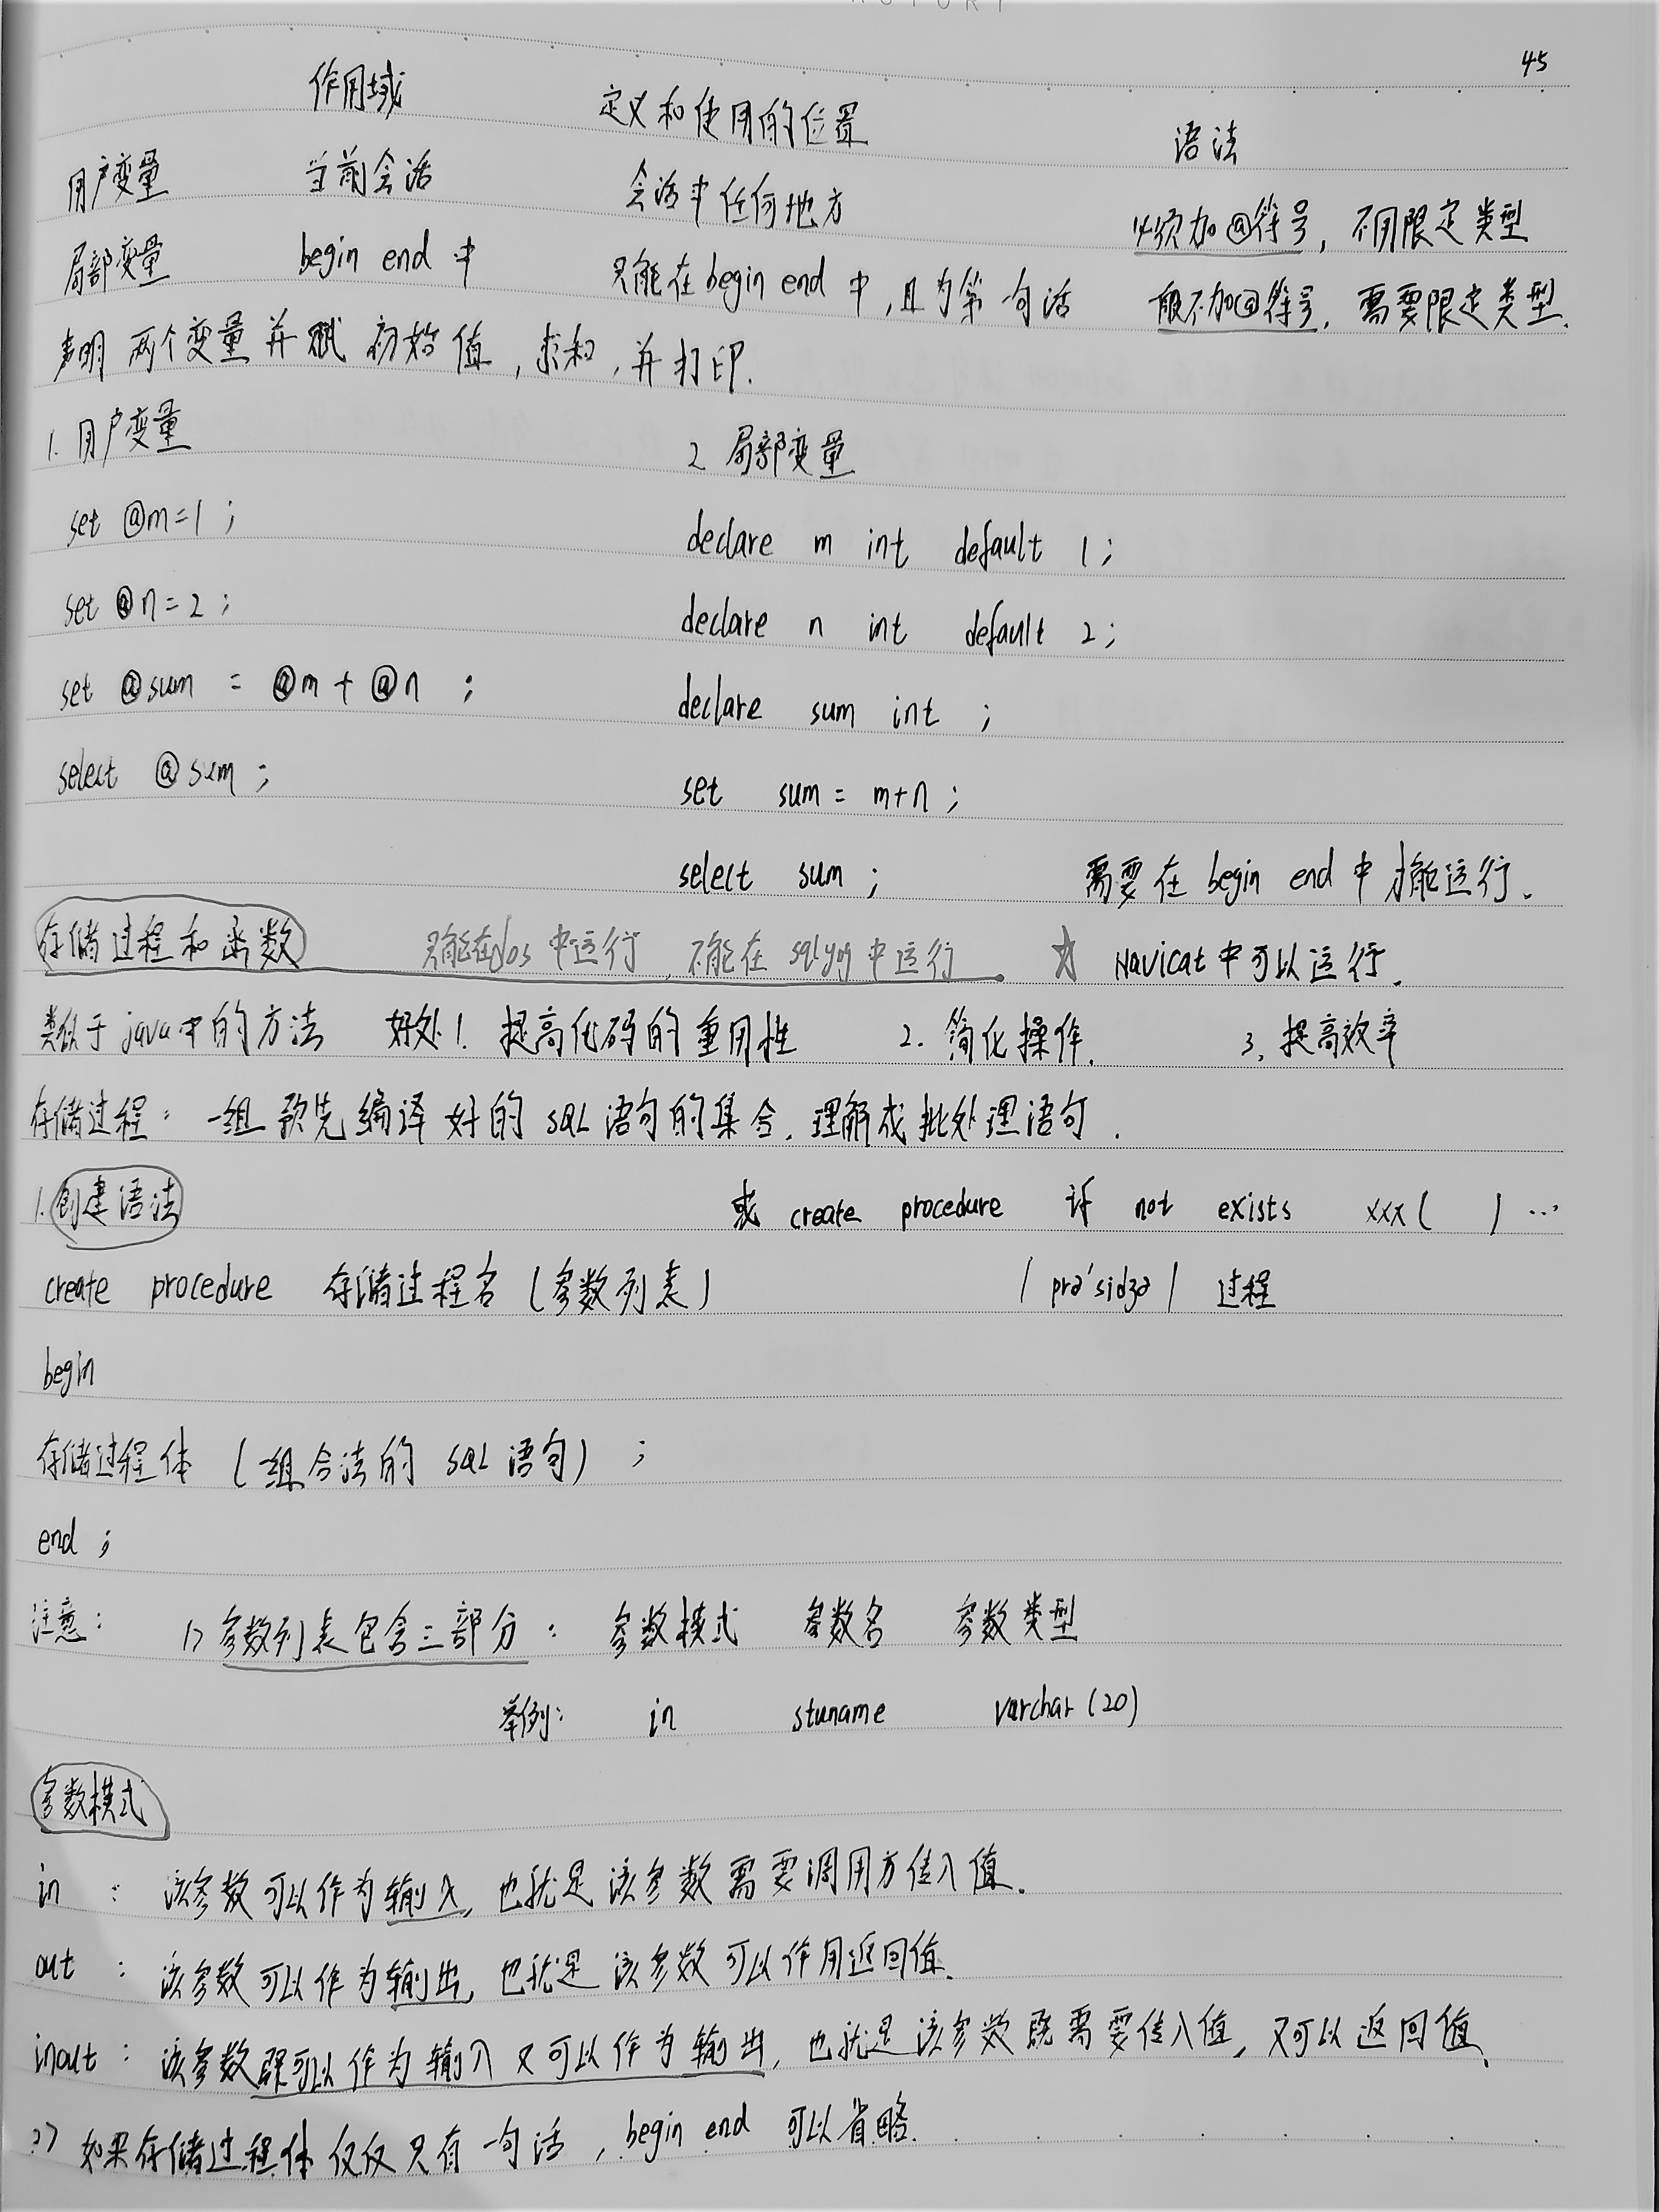 45
作用域 定义和使用的位置 语法
用户变量 当前会话 会话中任何地方 必须加@符号，不用限定类型
局部变量 begin end 中 只能在begin end 中，且为第一句话 一般不加@符号，需要限定类型.
声明两个变量并赋初始值，求和，并打印.
1. 用户变量 2 局部变量
set @m=1；
declare m int default 1；
set @n=2；
declare n int default 2；
set @sum = @m + @n ；
declare sum int ；
select @sum；
set sum = m+n；
select sum； 需要在 begin end 中才能运行.
存储过程和函数 只能在dos中运行，不能在 sqlyog 中运行. ☆ Navicat中可以运行.
类似于java中的方法 好处1. 提高代码的重用性 2. 简化操作. 3. 提高效率
存储过程：一组预先编译好的 SQL 语句的集合，理解成批处理语句.
1.创建语法 或 create procedure if not exists xxx( )…
create procedure 存储过程名（参数列表） / prə'sidʒə / 过程
begin
存储过程体（一组合法的 SQL 语句）；
end；
注意： 1> 参数列表包含三部分： 参数模式 参数名 参数类型
举例： in stuname varchar(20)
参数模式
in ： 该参数可以作为输入，也就是该参数需要调用方传入值.
out ： 该参数可以作为输出，也就是该参数可以作用返回值.
inout ： 该参数既可以作为输入又可以作为输出，也就是该参数既需要传入值，又可以返回值.
2> 如果存储过程体仅仅只有一句话，begin end 可以省略.